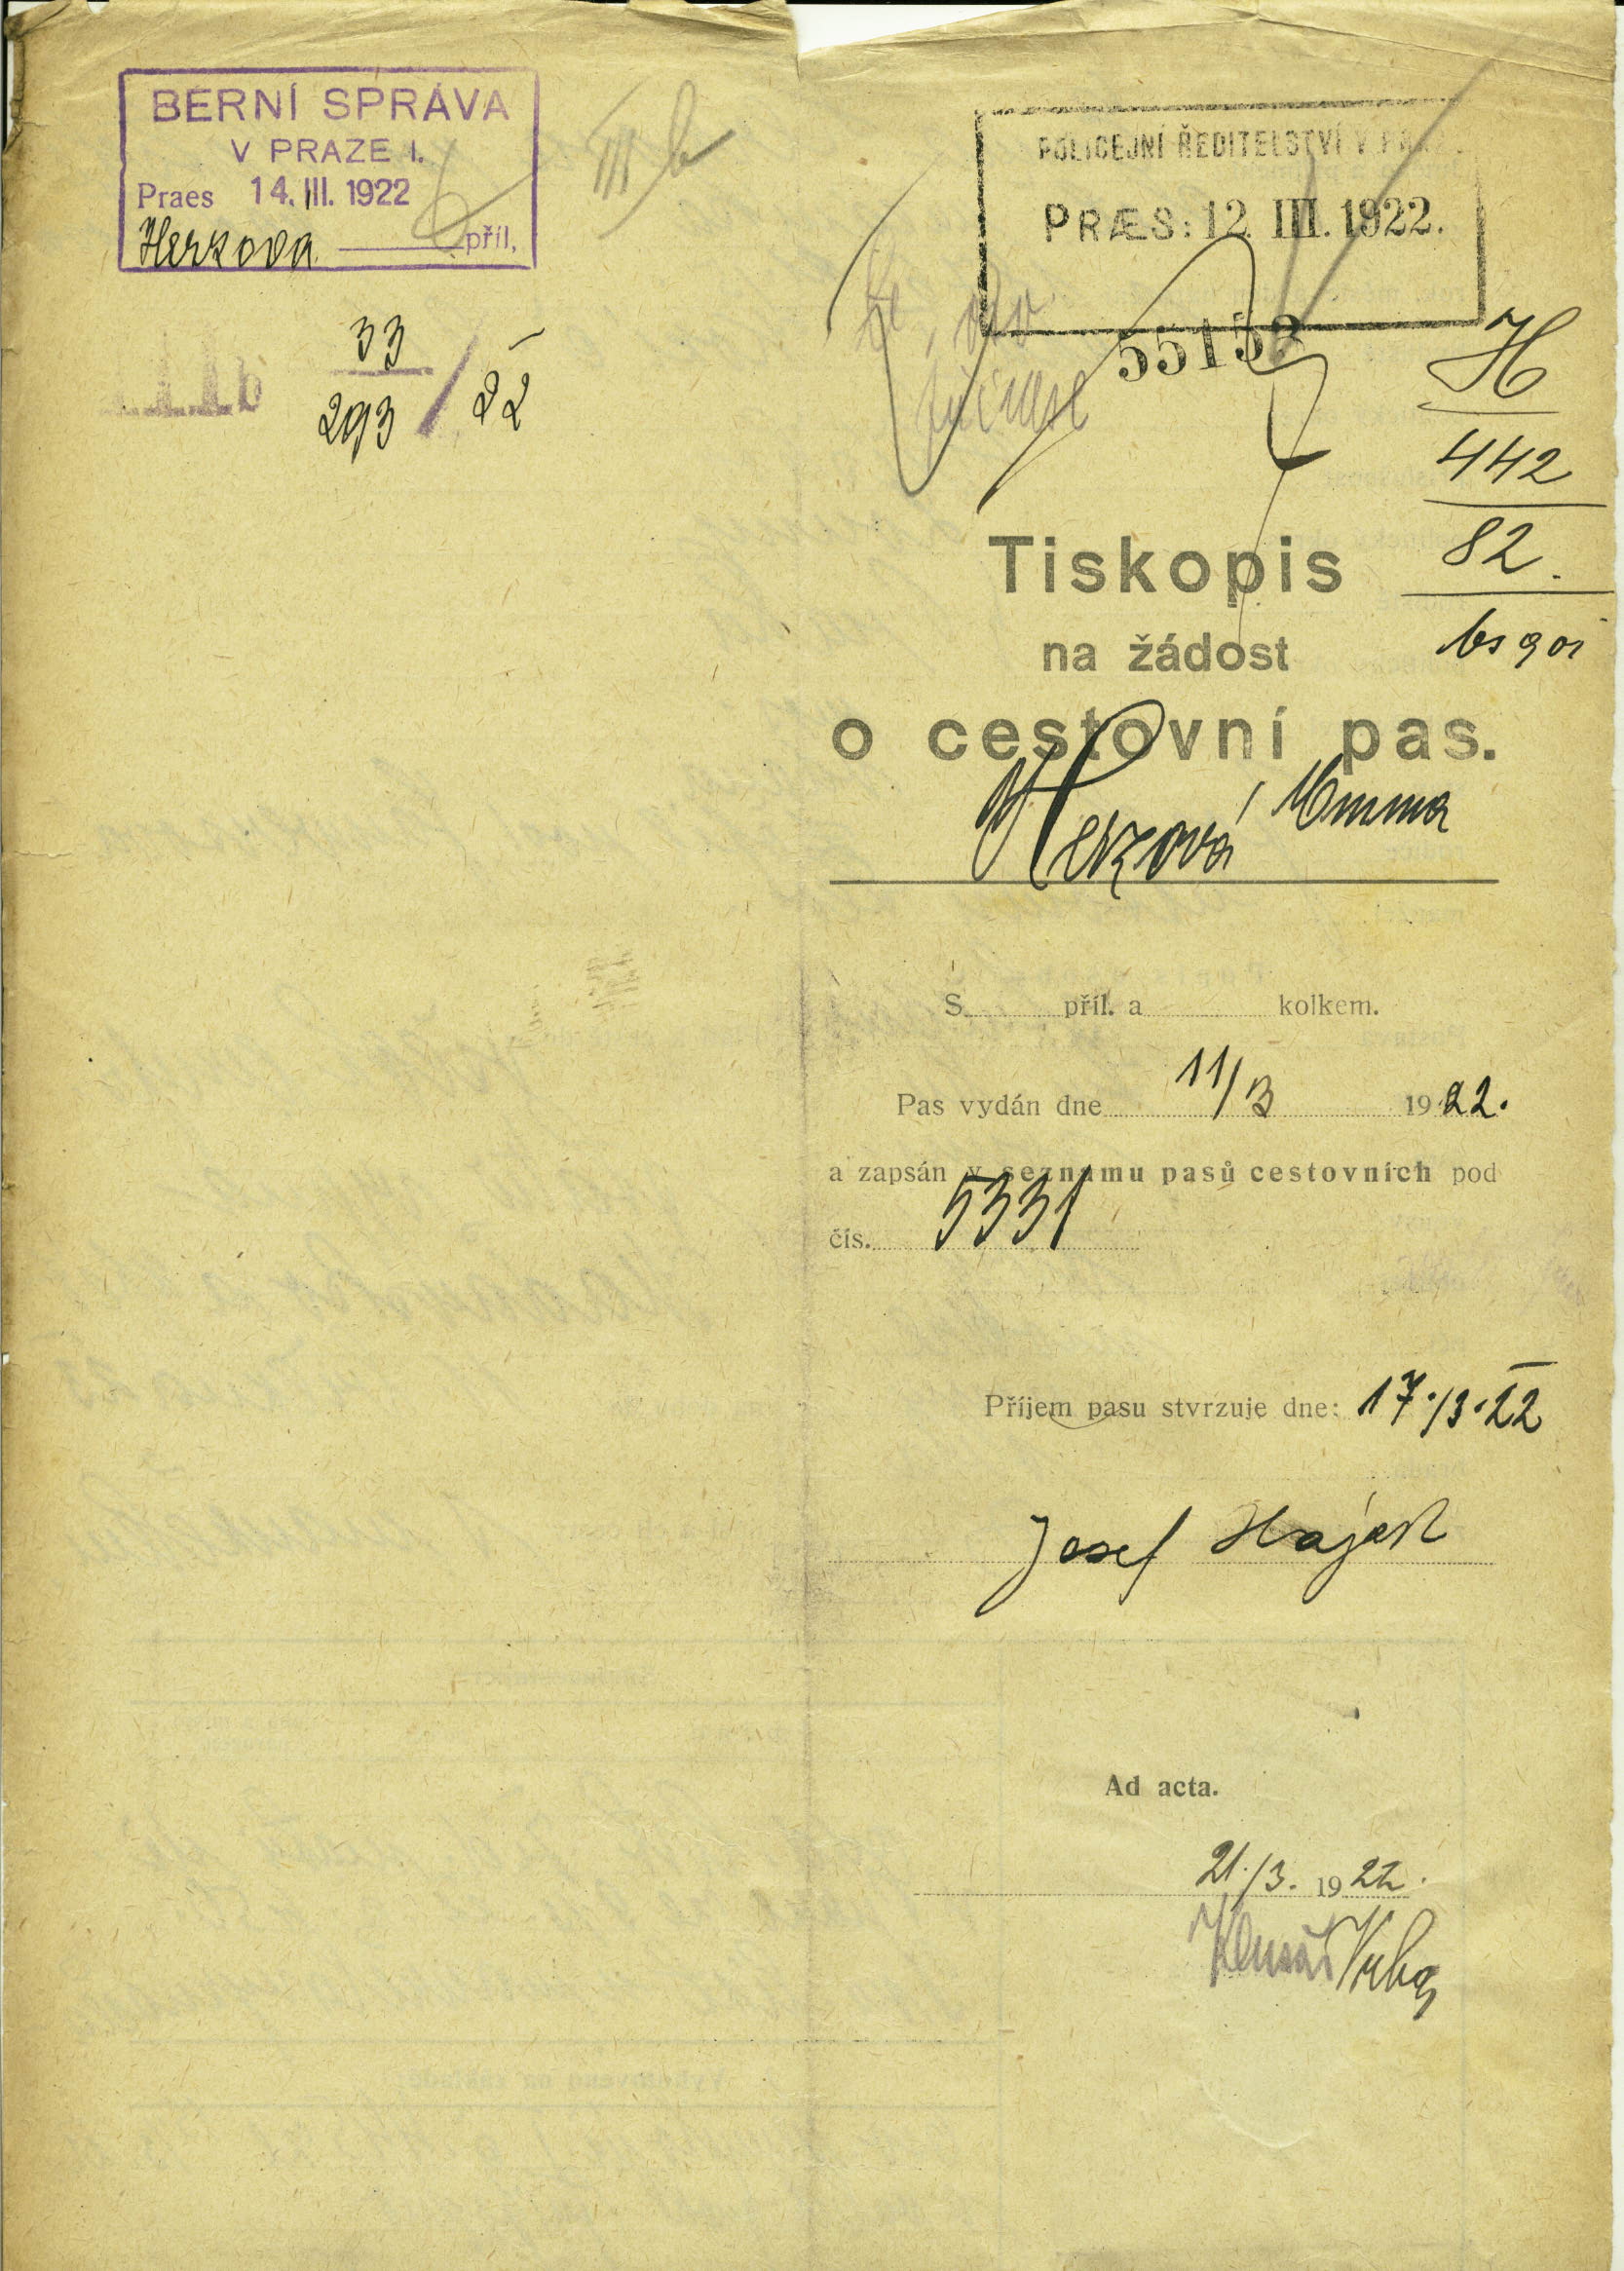 BERNÍ SPRÁVA
V PRAZE I.
Praes 14. III. 1922
Herzova příl.
33
293 / 22
III b
POLICEJNÍ ŘEDITELSTVÍ V
PRÆS: 12. III. 1922.
H
442
82.
Tiskopis
na žádost
o cestovní pas.
Herzová Emma
S příl. a kolkem.
Pas vydán dne 11/3 1922.
a zapsán v seznamu pasů cestovních pod
čís. 5331
Příjem pasu stvrzuje dne: 17./3.22
Josef Hájek
Ad acta.
21./3. 1922.